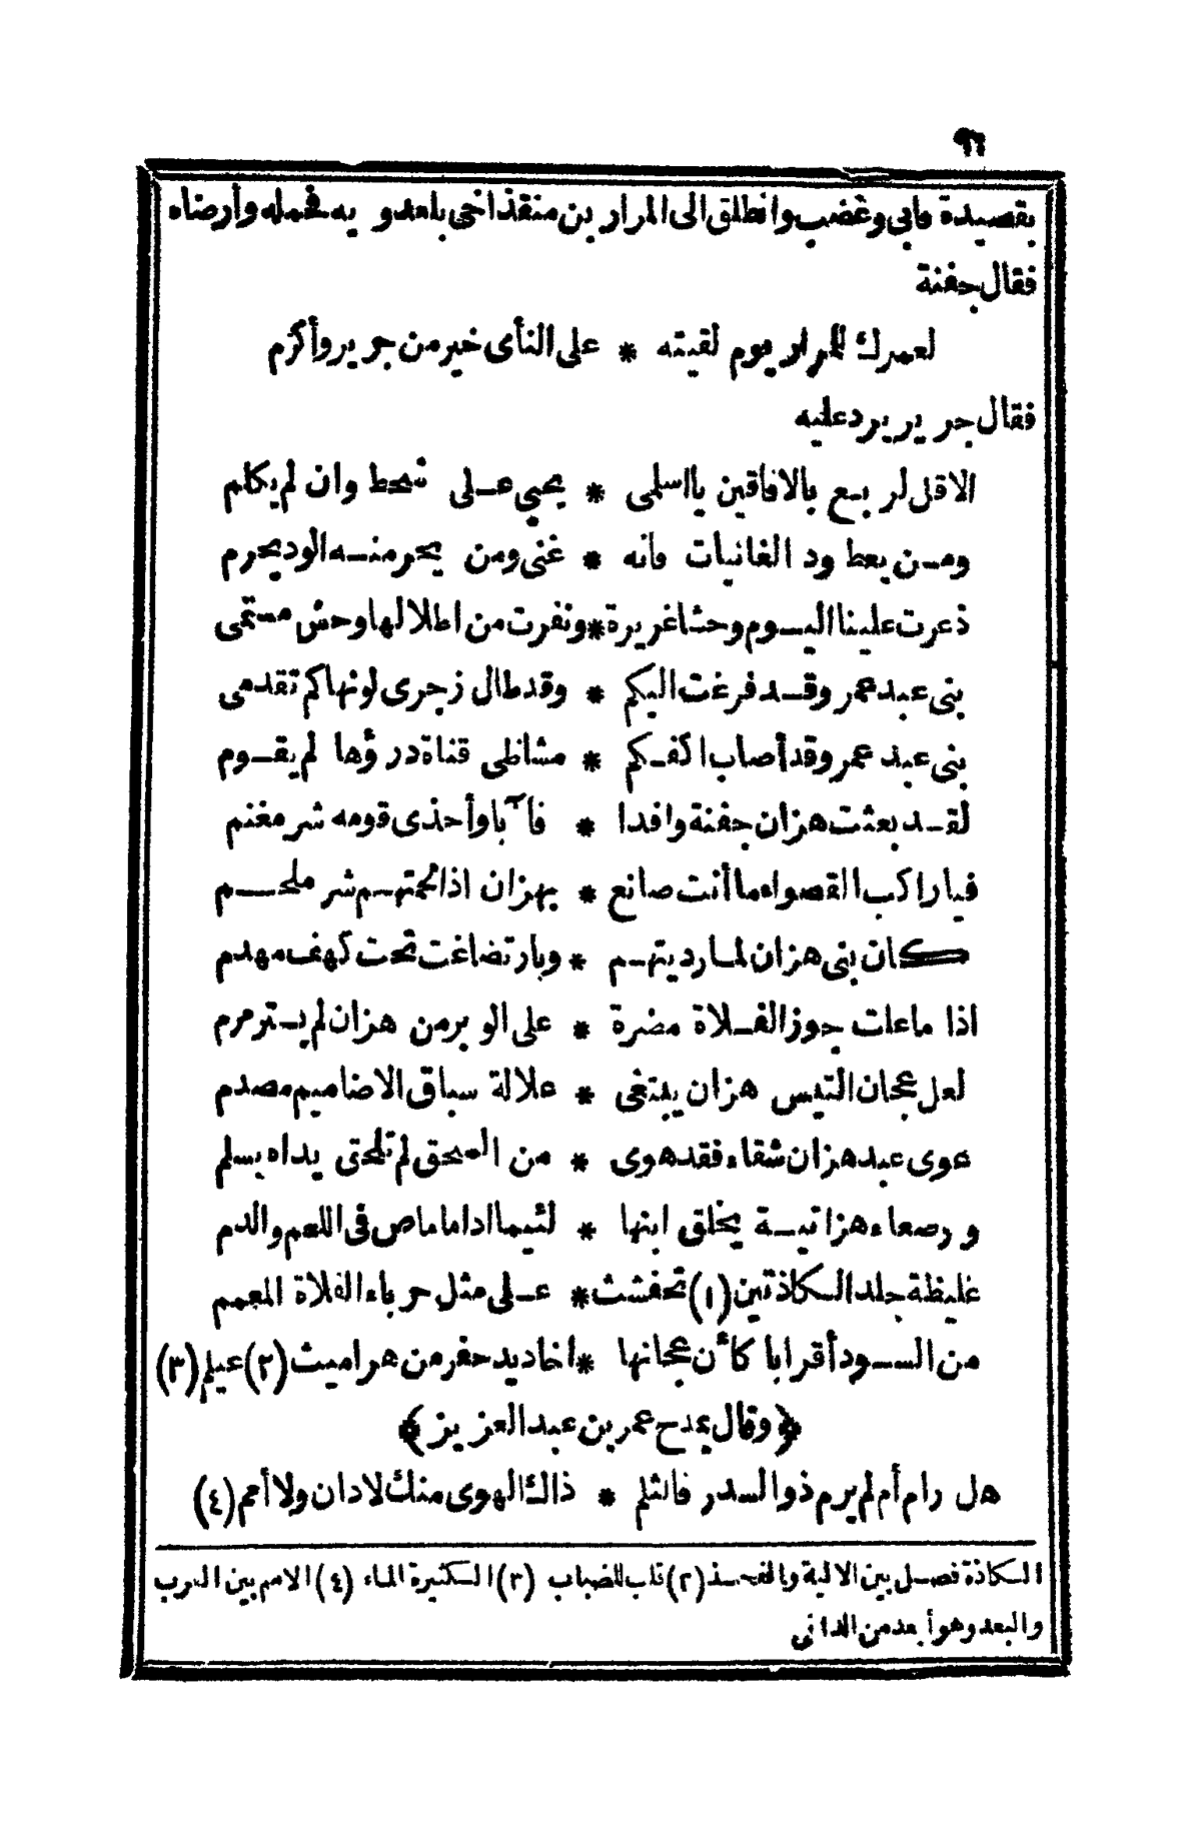 ٩٦
بقصيدة فأبى وغضب وانطلق الى المرار بن منقذ اخى بلعدو يه فحمله وأرضاه
فقال جفنة
لعمرك للمرار يوم لقيته * على النأى خير من جرير وأكرم
فقال جرير يرد عليه
الاقل لربع بالافاقين يااسلمى * يحيى على شحط وان لم يكلم
ومن يعط ود الغانيات فانه * غنى ومن يحرمنه الود يحرم
ذعرت علينا اليوم وحشا غريرة * ونفرت من اطلالها وحش مستمى
بنى عبد عمر وقد فرغت اليكم * وقد طال زجرى لو نهاكم تقدمى
بنى عبد عمر وقد أصاب اكفكم * مشاظى قناة درؤها لم يقوم
لقد بعثت هزان جفنة وافدا * فآبا وأحذى قومه شر مغنم
فيا راكب القصواء ما أنت صانع * بهزان اذا لحمتهم شر ملحم
كان بنى هزان لما رديتهم * وبار تضاغت تحت كهف مهدم
اذا ما علت جوز الفلاة مضرة * على الوبر من هزان لم يترمرم
لعل عجان التيس هزان يبتغى * علالة سباق الاضاميم مصدم
عوى عبد هزان شقاء فقد هوى * من المحق لم تلحق يداه بسلم
ورصعاء هزانية يخلق ابنها * لئيما اذا ماماص فى اللحم والدم
غليظة جلد الكاذتين (١) تحفشت * على مثل حرباء الفلاة المعمم
من السود أقرابا كأن عجانها * اخاديد حفر من هراميث (٢) عيلم (٣)
﴿ وقال يمدح عمر بن عبد العزيز ﴾
هل رام أم لم يرم ذو السدر فالثلم * ذاك الهوى منك لادان ولا أمم (٤)
الكاذة فصل بين الالية والفخذ (٢) تاب للضباب (٣) الكثيرة الماء (٤) الامم بين القرب
والبعد وهو أبعد من الدانى